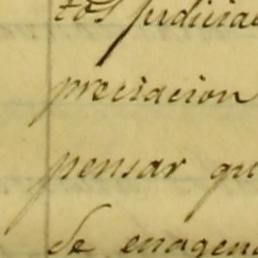 tos judicia
preciacion
pensar qu
de enagen